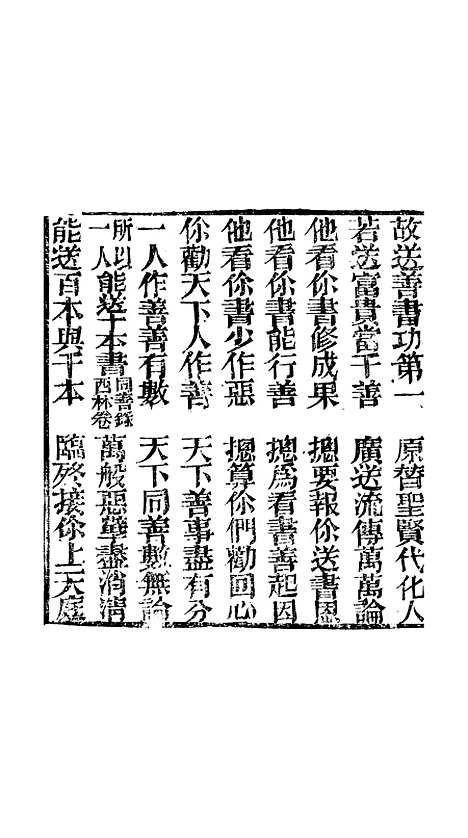 故送善書功第一 原替聖賢代化人
若送富貴當千善 廣送流傳萬萬論
他看你書修成果 揔要報你送書恩
他看你書能行善 揔爲看書善起因
他看你書少作惡 揔算你們勸回心
你勸天下人作善 天下善事盡有分
一人作善善有數 天下同善數無論
所以一人能送千本書同善錄西林卷 萬般惡孽盡消清
能送百本與千本 臨終接你上天庭